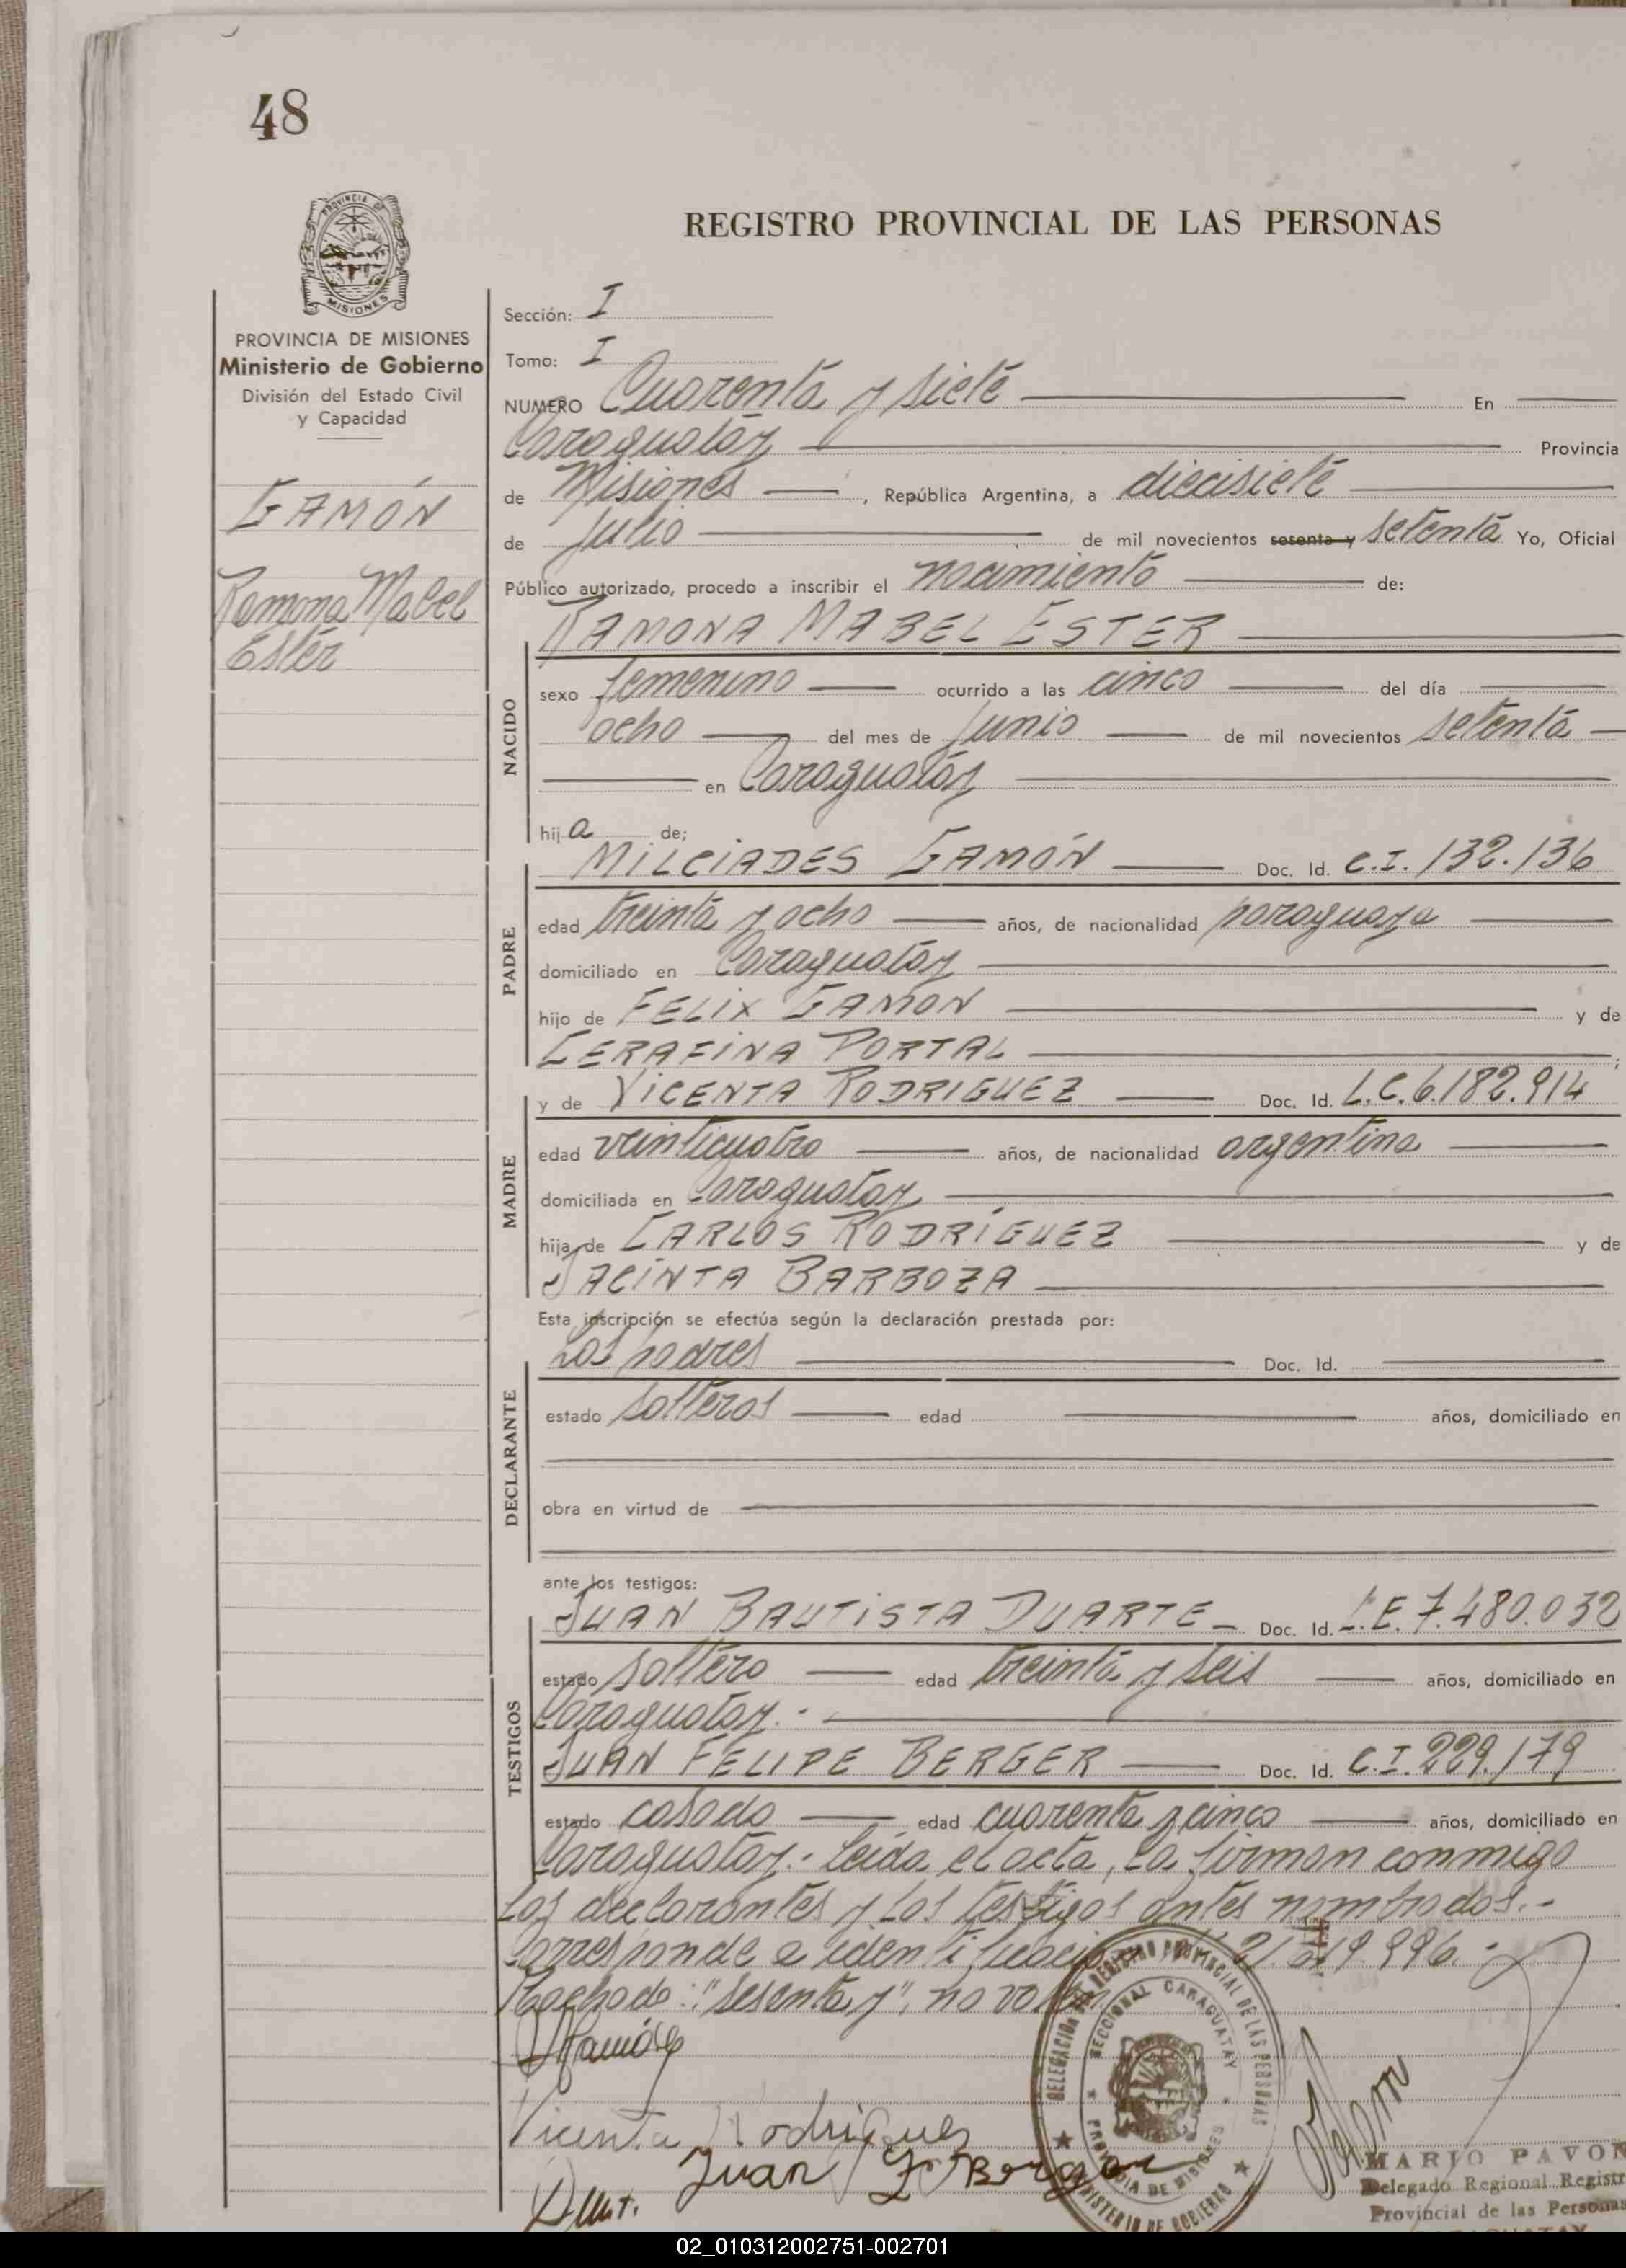 48
REGISTRO PROVINCIAL DE LAS PERSONAS
PROVINCIA DE
MISIONES
PROVINCIA DE MISIONES
Ministerio de Gobierno
División del Estado Civil
y Capacidad
GAMÓN
Ramona Mabel
Ester
Sección: I
Tomo: I
NUMERO Cuarenta y siete En
Caraguatay Provincia
de Misiones, República Argentina, a diecisiete
de julio de mil novecientos sesenta y setenta Yo, Oficial
Público autorizado, procedo a inscribir el nacimiento de:
RAMONA MABEL ESTER
NACIDO
sexo femenino ocurrido a las cinco del día
ocho del mes de junio de mil novecientos setenta
en Caraguatay
hija de;
MILCIADES GAMÓN Doc. Id. C.I. 132.136
PADRE
edad treinta y ocho años, de nacionalidad paraguaya
domiciliado en Caraguatay
hijo de FELIX GAMON y de
CERAFINA PORTAL;
y de VICENTA RODRIGUEZ Doc. Id. L.C. 6.182.914
MADRE
edad veinticuatro años, de nacionalidad argentina
domiciliada en Caraguatay
hija de CARLOS RODRÍGUEZ y de
JACINTA BARBOZA
Esta inscripción se efectúa según la declaración prestada por:
Los padres Doc. Id.
DECLARANTE
estado solteros edad años, domiciliado en
obra en virtud de
ante los testigos:
JUAN BAUTISTA DUARTE Doc. Id. L.E. 7.480.032
TESTIGOS
estado soltero edad treinta y seis años, domiciliado en
Caraguatay.-
JUAN FELIPE BERGER Doc. Id. C.I. 229.179
estado casado edad cuarenta y cinco años, domiciliado en
Caraguatay.- Leída el acta, la firman conmigo
los declarantes y los testigos antes nombrados.-
Corresponde a identificación 996.-
Tachado: "sesenta y", no vale.
Vicenta Rodriguez
Juan F Berger
DELEGACION DEL REGISTRO PROVINCIAL DE LAS PERSONAS
SECCIONAL CARAGUATAY
PROVINCIA DE MISIONES
MINISTERIO DE GOBIERNO
MARIO PAVON
Delegado Regional Registr
Provincial de las Personas
02_010312002751-002701